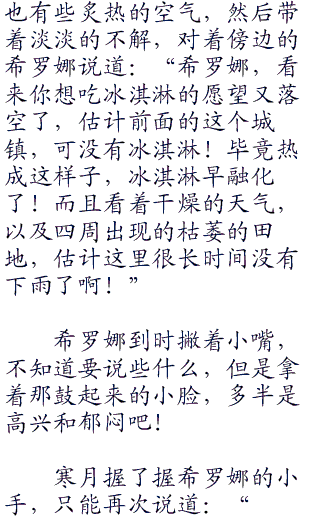 也有些炙热的空气，然后带
着淡淡的不解，对着傍边的
希罗娜说道：“希罗娜，看
来你想吃冰淇淋的愿望又落
空了，估计前面的这个城
镇，可没有冰淇淋！毕竟热
成这样子，冰淇淋早融化
了！而且看着干燥的天气，
以及四周出现的枯萎的田
地，估计这里很长时间没有
下雨了啊！”
希罗娜到时撇着小嘴，
不知道要说些什么，但是拿
着那鼓起来的小脸，多半是
高兴和郁闷吧！
寒月握了握希罗娜的小
手，只能再次说道：“